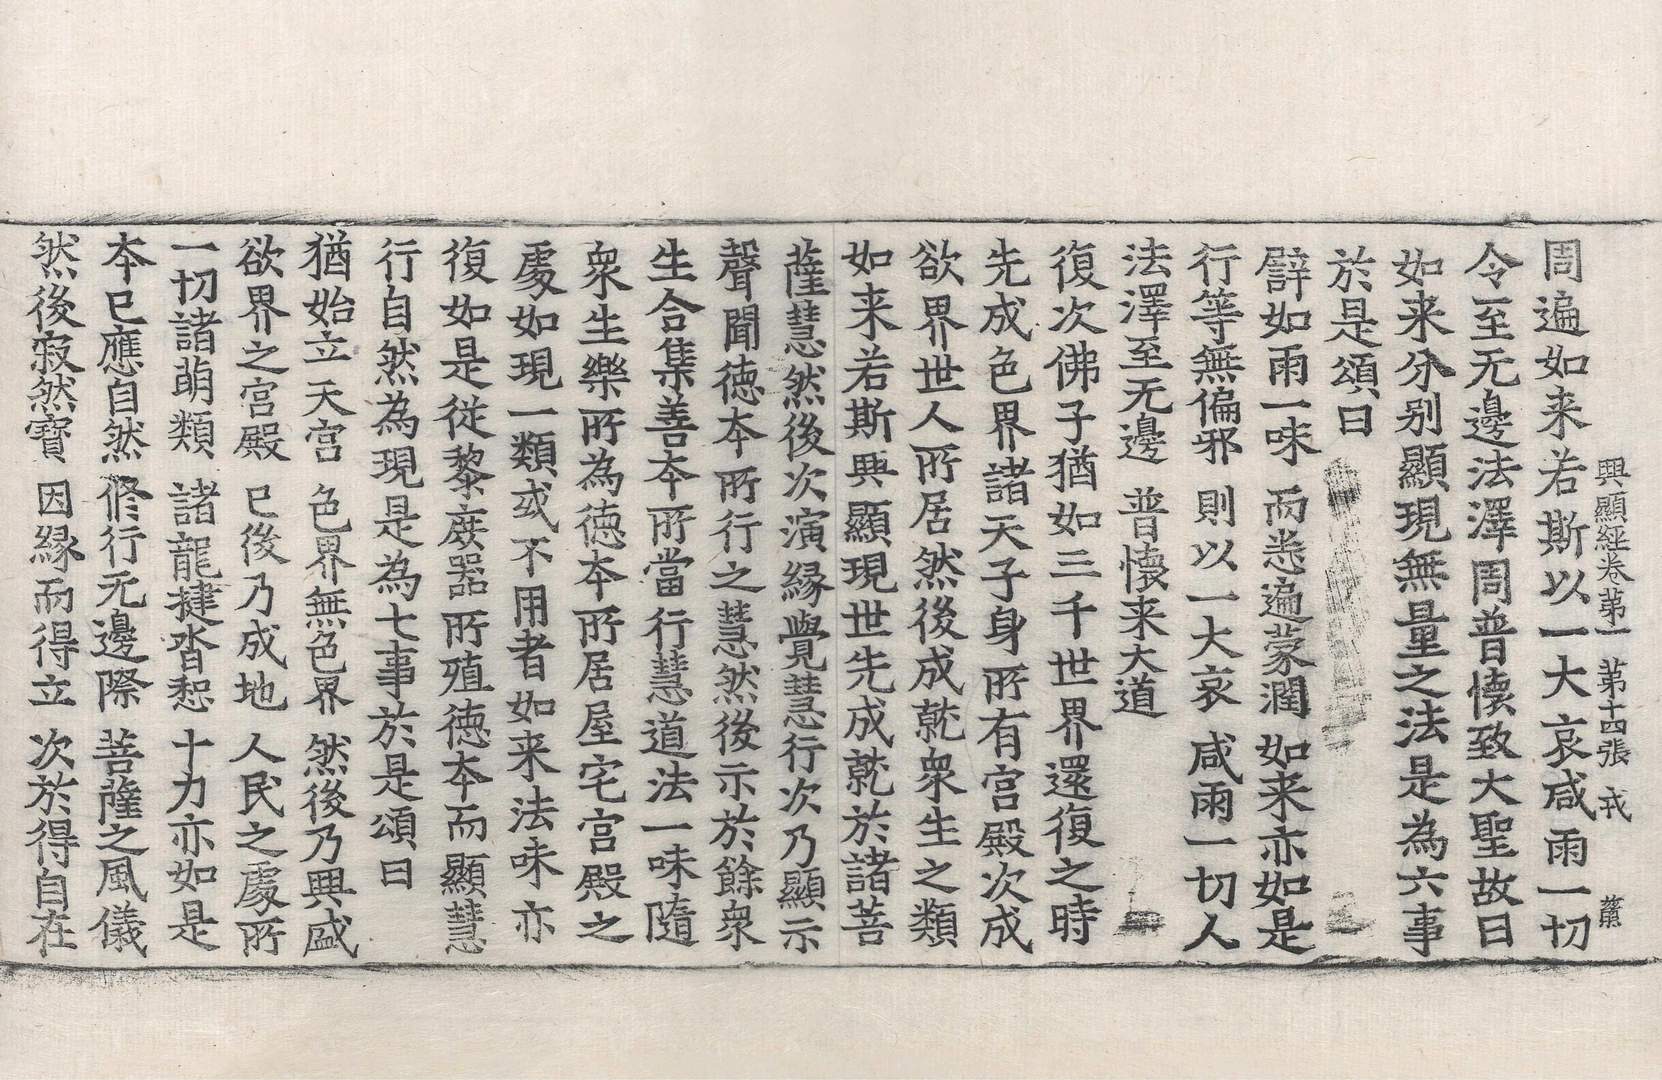 興顯經卷第一 第十四張 戎 蕭
周遍如来若斯以一大哀咸雨一切
令至无邊法澤周普懷致大聖故曰
如来分别顯現無量之法是為六事
於是頌曰
譬如雨一味 而悉遍蒙潤 如来亦如是
行等無偏邪 則以一大哀 咸雨一切人
法澤至无邊 普懷来大道
復次佛子猶如三千世界還復之時
先成色界諸天子身所有宫殿次成
欲界世人所居然後成就衆生之類
如来若斯興顯現世先成就於諸菩
薩慧然後次演縁覺慧行次乃顯示
聲聞德夲所行之慧然後示於餘衆
生合集善夲所當行慧道法一味隨
衆生樂所為德夲所居屋宅宫殿之
處如現一類或不用者如来法味亦
復如是従黎庶器所殖德夲而顯慧
行自然為現是為七事於是頌曰
猶始立天宫 色界無色界 然後乃興盛
欲界之宫殿 已後乃成地 人民之處所
一切諸萌類 諸龍揵沓惒 十力亦如是
夲已應自然 修行无邊際 菩薩之風儀
然後寂然寶 因縁而得立 次於得自在